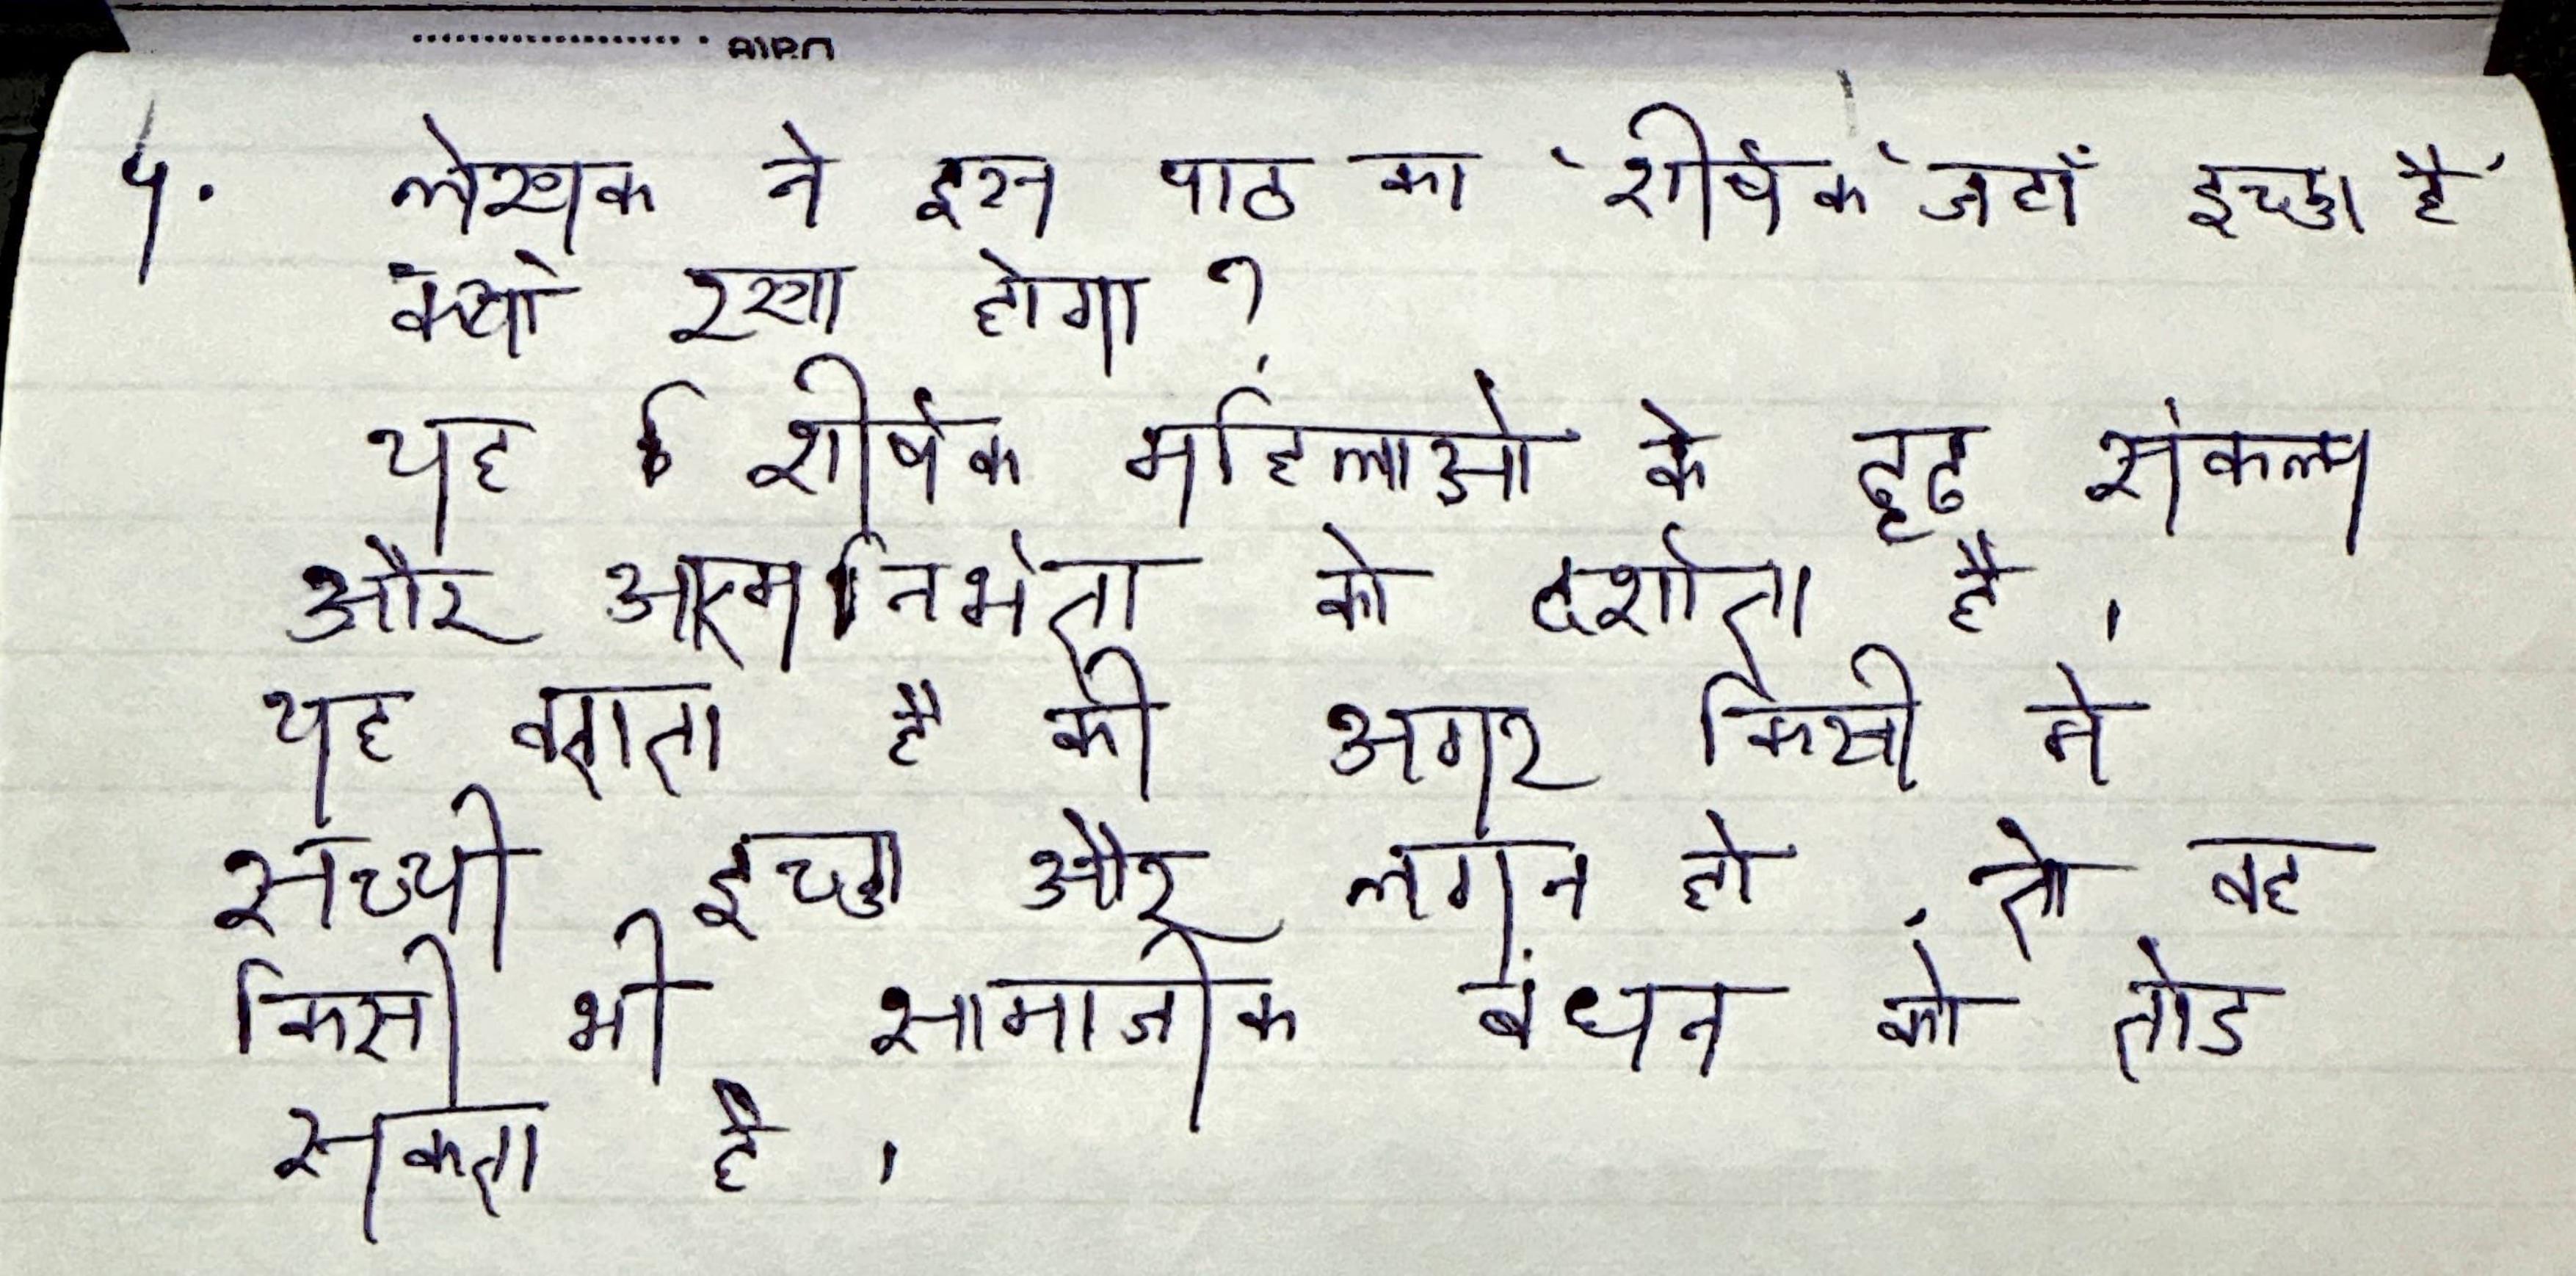 ५. लेखक ने इस पाठ का 'शीर्षक' जहाँ इच्छा है'
क्यो रखा होगा ?
यह शीर्षक महिलाओ के दृढ संकल्प
और आत्मनिर्भता को दर्शाता है ।
यह बताता है की अगर किसी ने
सच्ची इच्छा और लगन हो , तो वह
किसी भी सामाजीक बंधन को तोड
सकता है ।